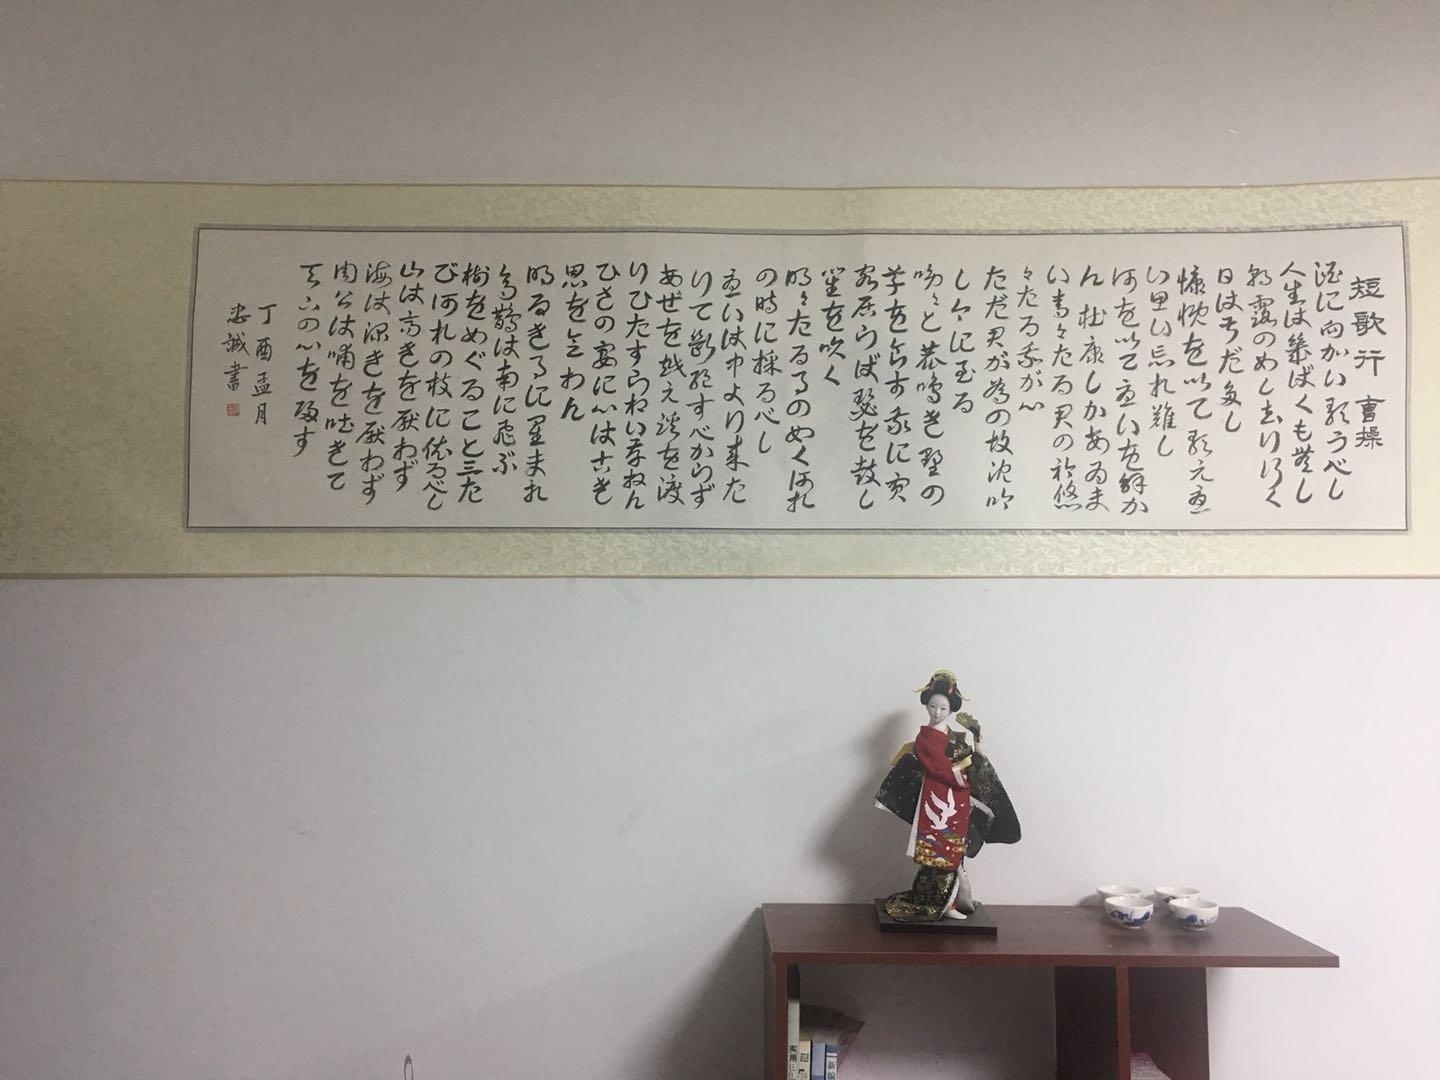 短歌行 曹操
酒に向かい歌うべし
人生は幾ばくも無し
朝露の如し去り行く
日は甚だ多し
慷慨を以て歌え憂
い思い忘れ難し
何を以て憂いを解か
ん 杜康しかあるま
い 青々たる君の衿 悠
々たる我が心
ただ君が為の故 沈吟
し今に至る
呦々と鹿鳴き 野の
苹を食す 我に賓
客居らば 瑟を鼓し
笙を吹く
明々たる月の如く 何れ
の時に採るべし
憂いは中より来た
りて断絶すべからず
あぜを越え渓を渡
りひたすらねい存ねん
ひさの宴に心は古き
思を念わん
明るき月に星まれ
烏鵲は南に飛ぶ
樹をめぐること三た
び 何れの枝に依るべし
山は高きを厭わず
海は深きを厭わず
周公は哺を吐きて
天下の心を帰す
丁酉孟月
忠誠書
实用日
新编